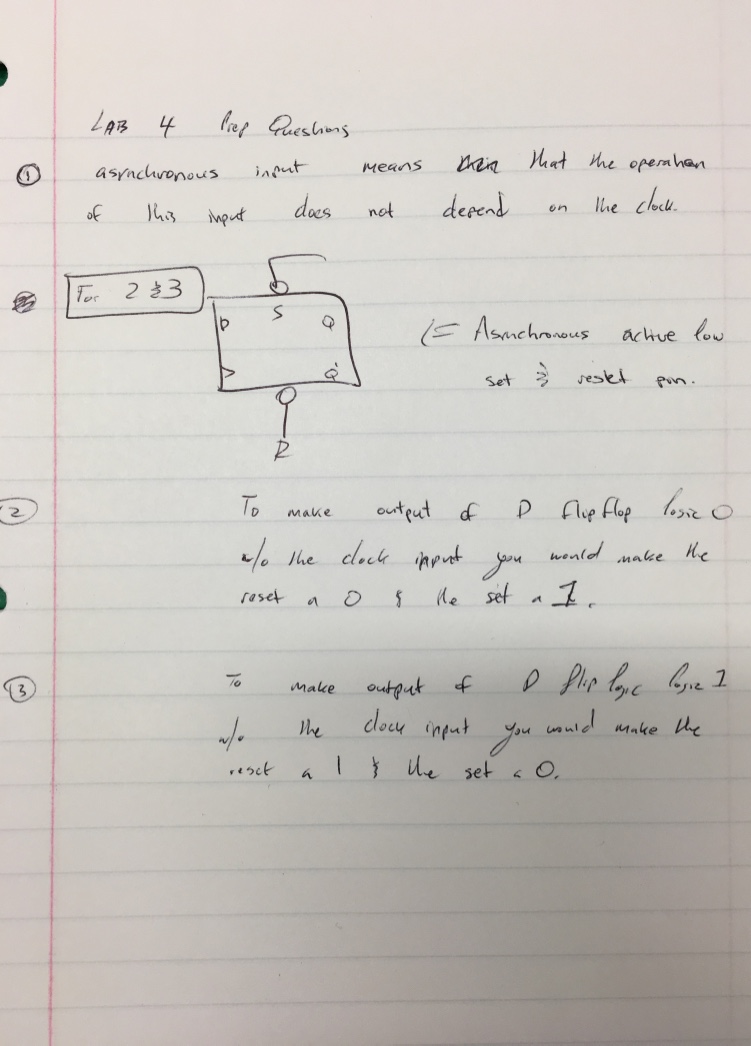 LAB 4 Prep Questions
① asynchronous input means that the operation
of this input does not depend on the clock.
For 2 & 3
S
D Q
Q'
R
(= Asynchronous active low
set & reset pin.
② To make output of D flip flop logic 0
w/o the clock input you would make the
reset a 0 & the set a 1.
③ To make output of D flip logic logic 1
w/o the clock input you would make the
reset a 1 & the set a 0.